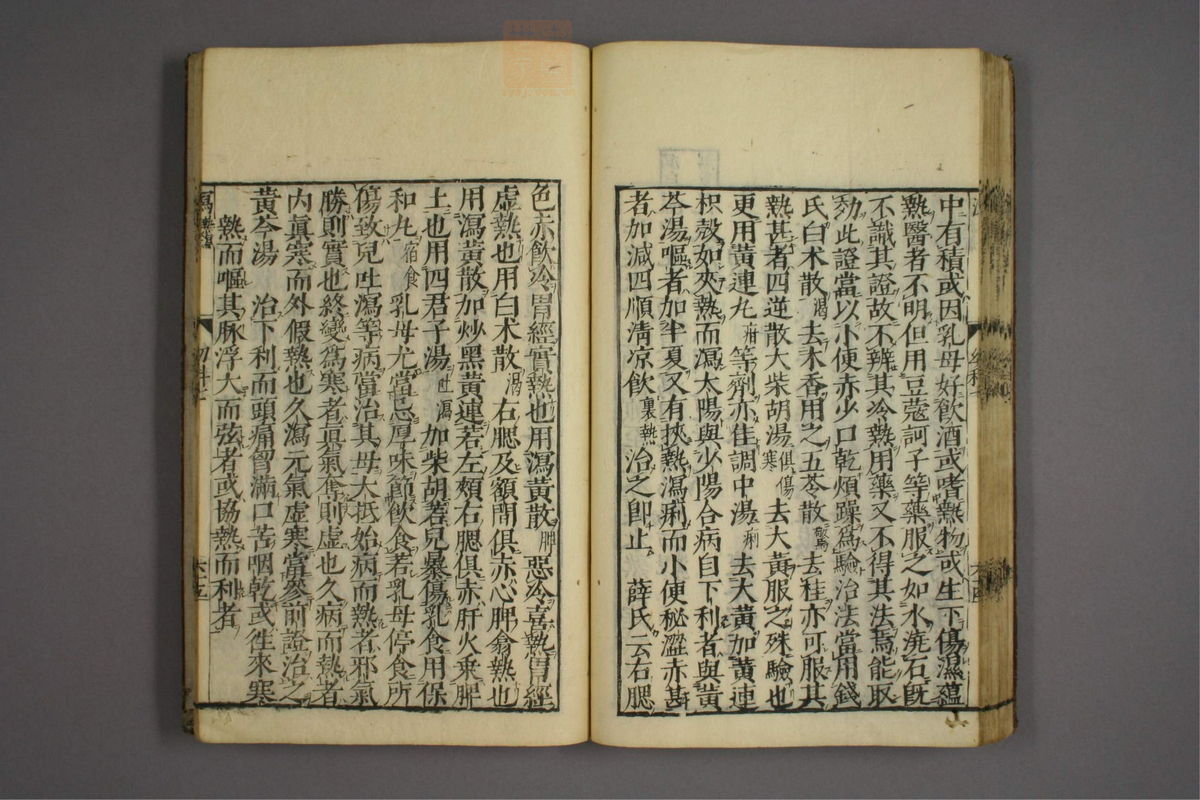 中有積或因乳母好飲酒或嗜熱物或生下傷濕蘊
熱醫者不明但用豆蔻訶子等藥服之如水澆石既
不識其證故不辨其冷熱用藥又不得其法焉能取
効此證當以小便赤少口乾煩躁爲驗治法當用錢
氏白术散渴去木香用之五苓散驚去桂亦可服其
熱甚者四逆散大柴胡湯俱傷寒去大黃服之殊驗也
更用黃連丸疳等劑亦佳調中湯痢去大黃加黃連
枳殼如夾熱而瀉太陽與少陽合病自下利者與黃
芩湯嘔者加半夏又有挾熱瀉痢而小便秘澀赤甚
者加減四順清凉飲裏熱治之即止 薛氏云右腮
色赤飲冷胃經實熱也用瀉黃散脾惡冷喜熱胃經
虛熱也用白术散渴右腮及額間俱赤心脾翕熱也
用瀉黃散加炒黑黃連若左頰右腮俱赤肝火乗脾
土也用四君子湯吐瀉加柴胡若兒暴傷乳食用保
和丸宿食乳母尤當忌厚味節飲食若乳母停食所
傷致兒吐瀉等病當治其母大抵始病而熱者邪氣
勝則實也終變爲寒者眞氣奪則虛也久病而熱者
内眞寒而外假熱也久瀉元氣虛寒當參前證治之
黃芩湯 治下利而頭痛胷滿口苦咽乾或徃來寒
熱而嘔其脉浮大而弦者或協熱而利者
六十五